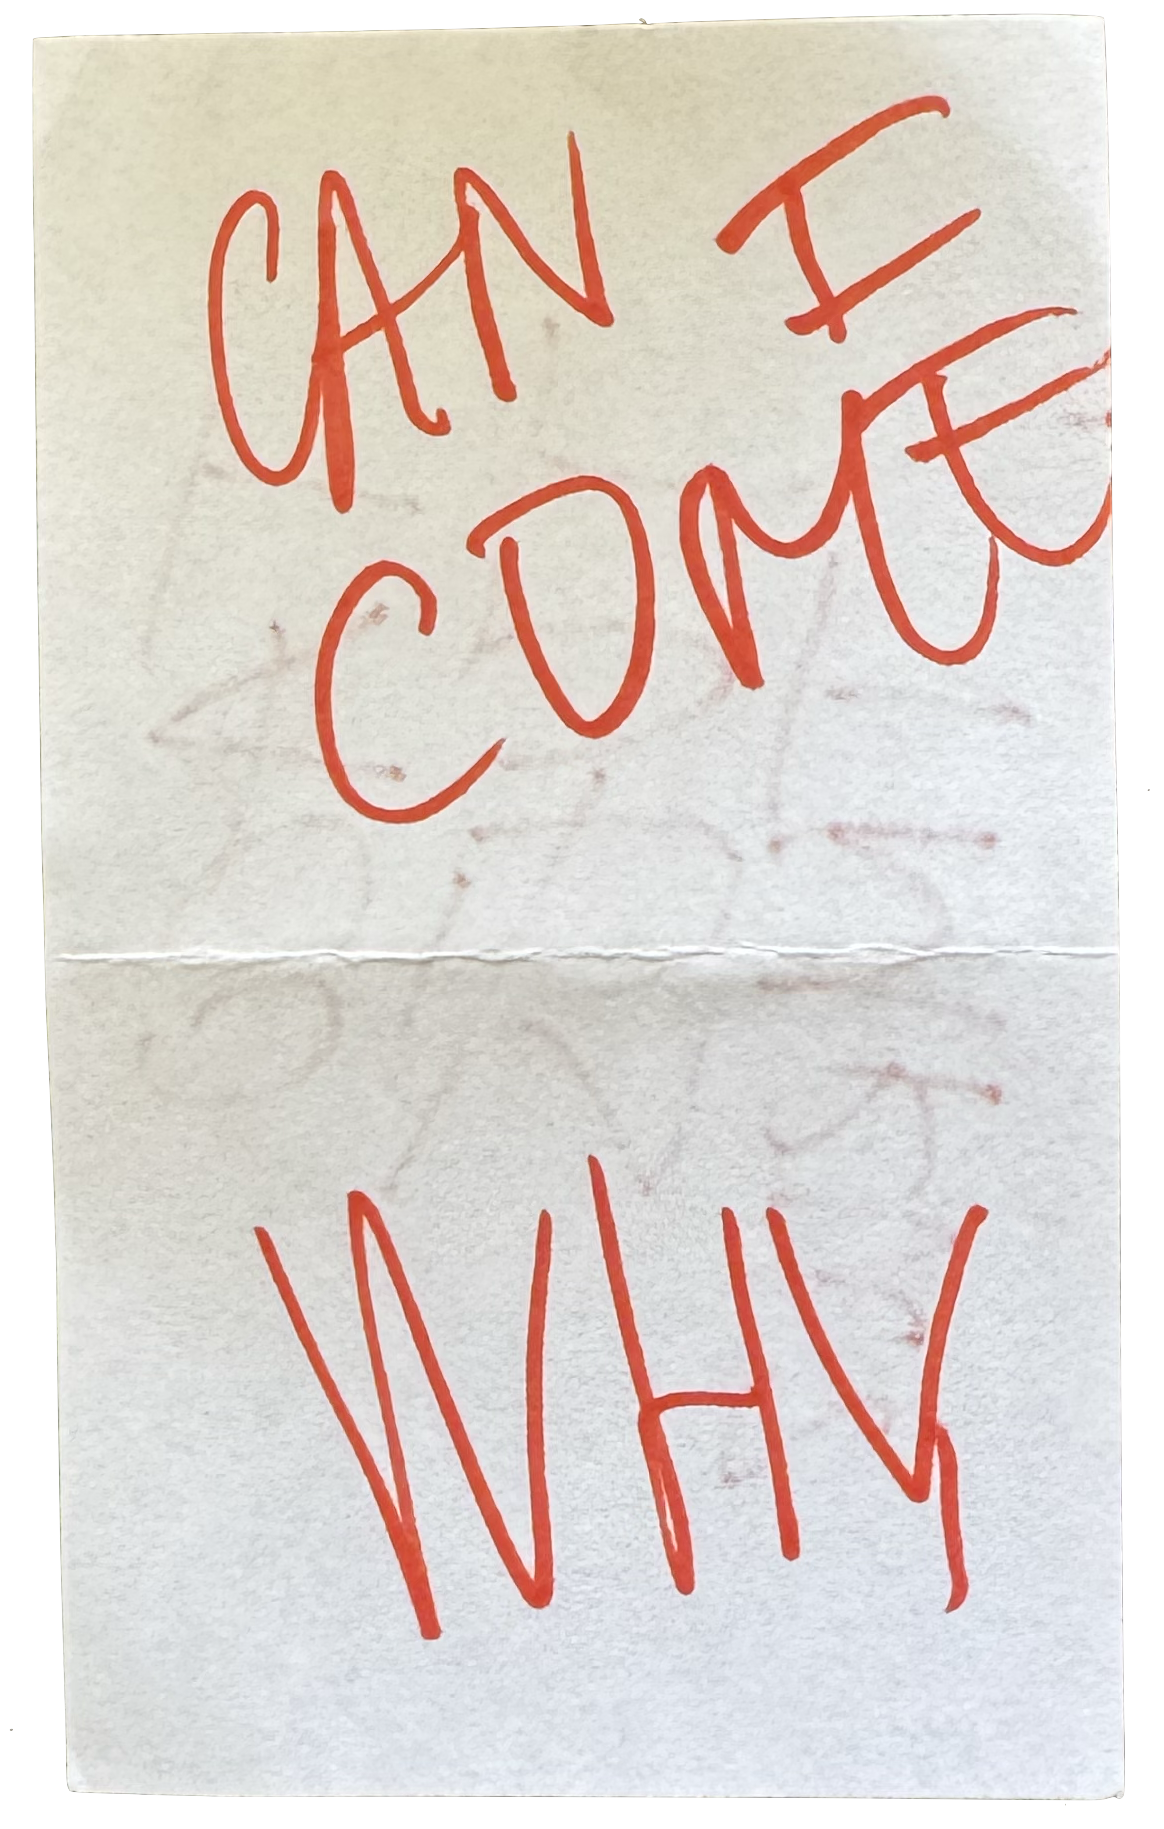 CAN I
COME
WHY